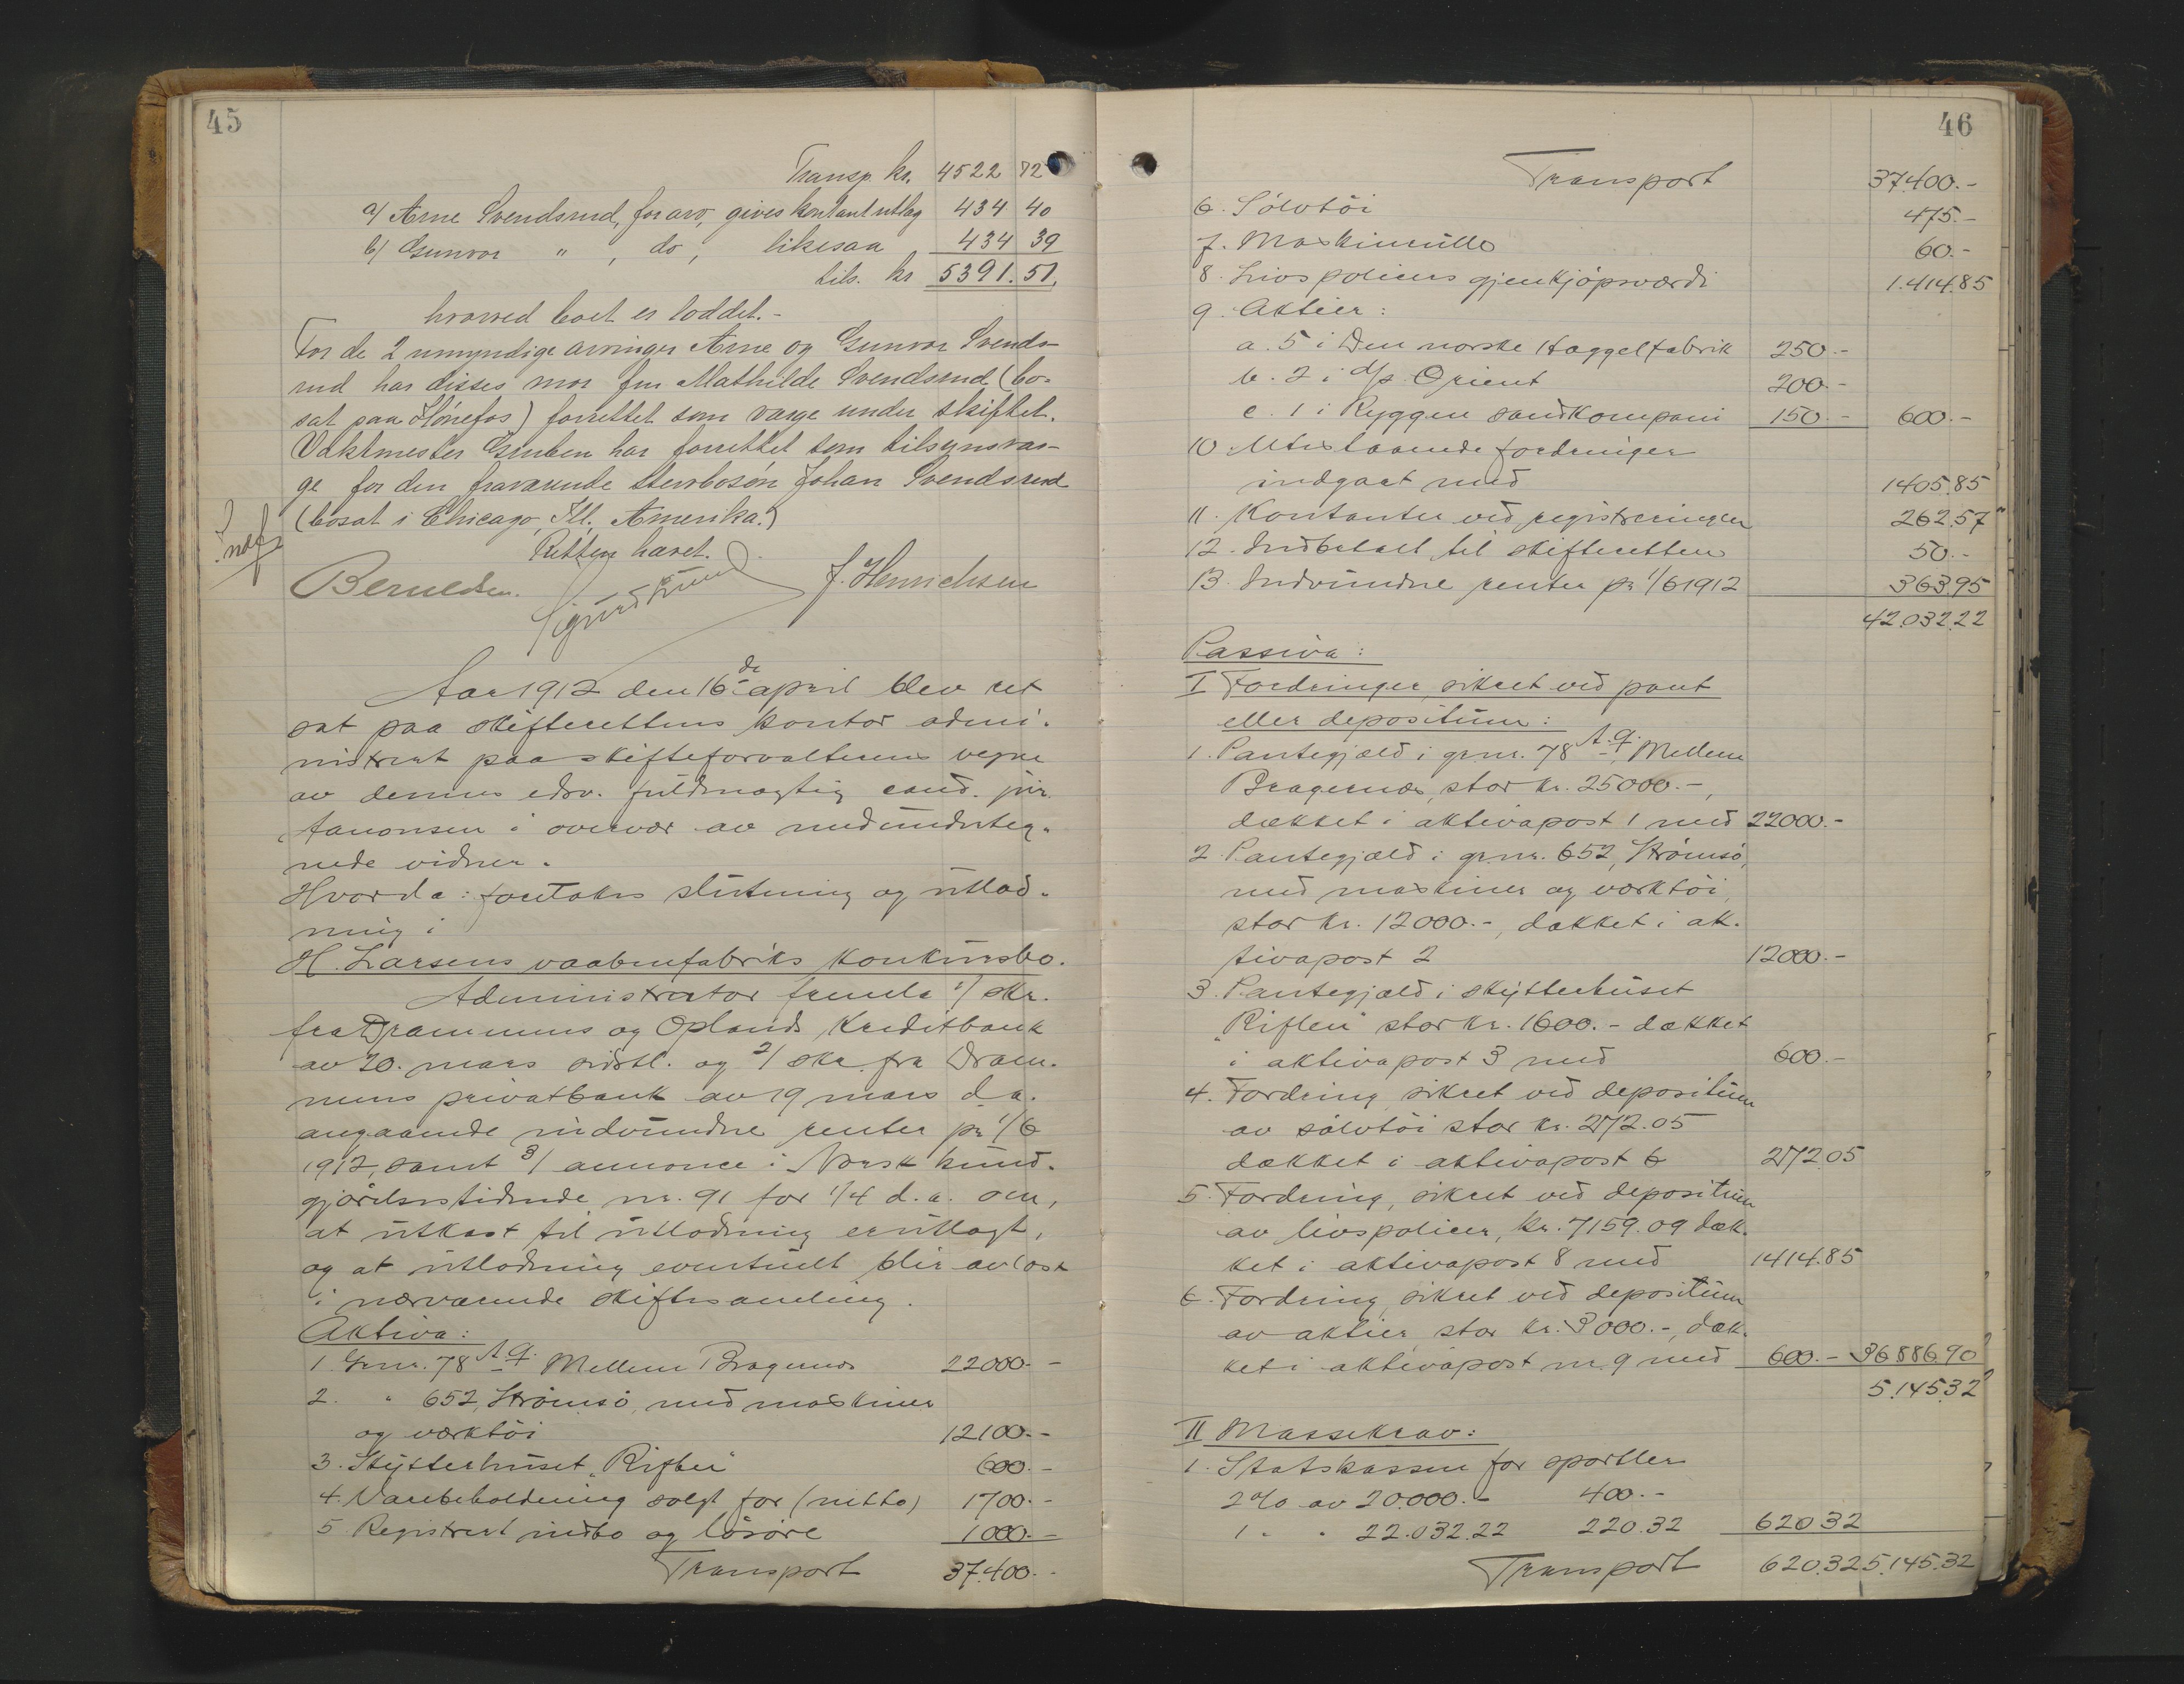 45
Transp. kr. 4522 72
a/ Arne Svendsrud, for arv, gives kontant utlæg 434 40
b/ Gunvor " , do , likesaa 434 39
tils. kr 5391.51.
hvorved boet er loddet.-
For de 2 umyndige arvinger Arne og Gunvor Svends-
rud har disses mor fru Mathilde Svendsrud (bo-
sat paa Hønefos) forrettet som værge under skiftet.
Vaktmester Gruben har forrettet som tilsynsvær-
ge for den fraværende stervbosøn Johan Svendsrud
(bosat i Chicago, Ill. Amerika.)
Retten hævet.
J. Henrichsen
Aar 1912 den 16de april blev ret
sat paa skifterettens kontor admi-
nistrert paa skifteforvalterens vegne
av dennes edsv. fuldmægtig cand. jur.
Aanonsen i overvær av medunderteg-
nede vidner.
Hvorda: foretokes slutning og utlod-
ning i
H. Larsens vaabenfabriks konkursbo.
Administrator fremla 1/ skr.
fra Drammens og Oplands Kreditbank
av 20. mars sidstl. og 2/ skr. fra Dram-
mens privatbank av 19 mars d.a.
angaaende indvundne renter pr 1/6
1912, samt 3/ annonce i Norsk kund-
gjørelsestidende nr. 91 for 1/4 d.a. om,
at utkast til utlodning er utlagt,
og at utlodning eventuelt blir avlæst
i nærværende skiftesamling.
Aktiva:
1. Grnr. 78 A.q. Mellem Bragernæs 22000.-
2. " 652, Strømsø, med maskiner
og værktøi 12100.-
3. Skytterhuset "Riflen" 600.-
4. Varebeholdning solgt for (netto) 1700.-
5. Registrert indbo og løsøre 1000.-
Transport 37.400.-
46
Transport 37.400.-
6. Sølvtøi 475.-
7. Maskinrulle 60.-
8. Livspolicens gjenkjøpsværdi 1.414.85
9. Aktier:
a. 5 i Den norske Haggelfabrik 250.-
b. 2 i d/s Orient 200.-
c. 1 i Ryggen sandkompani 150.- 600.-
10. Utestaaende fordringer
indgaat med 1405.85
11. Kontanter ved registreringen 262.57
12. Indbetalt til skifteretten 50.-
13. Indvundne renter pr 1/6 1912 363.95
42.032.22
Passiva:
I Fordringer, sikret ved pant
eller depositum:
1. Pantegjæld i grnr. 78 A.q. Mellem
Bragernæs, stor kr. 25000.-,
dækket i aktivapost 1 med 22000.-
2. Pantegjæld i grnr. 652, Strømsø,
med maskiner og værktøi,
stor kr. 12000.-, dækket i ak-
tivapost 2 12000.-
3. Pantegjæld i skytterhuset
"Riflen" stor kr. 1600.- dækket
i aktivapost 3 med 600.-
4. Fordring, sikret ved depositum
av sølvtøi stor kr. 272.05
dækket i aktivapost 6 272.05
5. Fordring, sikret ved depositum
av livspolicer, kr. 7159.09 dæk-
ket i aktivapost 8 med 1414.85
6. Fordring, sikret ved depositum
av aktier, stor kr. 3000.-, dæk-
ket i aktivapost nr. 9 med 600.- 36886.90
5.145.32
II Massekrav:
1. Statskassen for sportler
2% av 20.000.- 400.-
1 " " 22.032.22 220.32 620.32
Transport 620.32 5.145.32